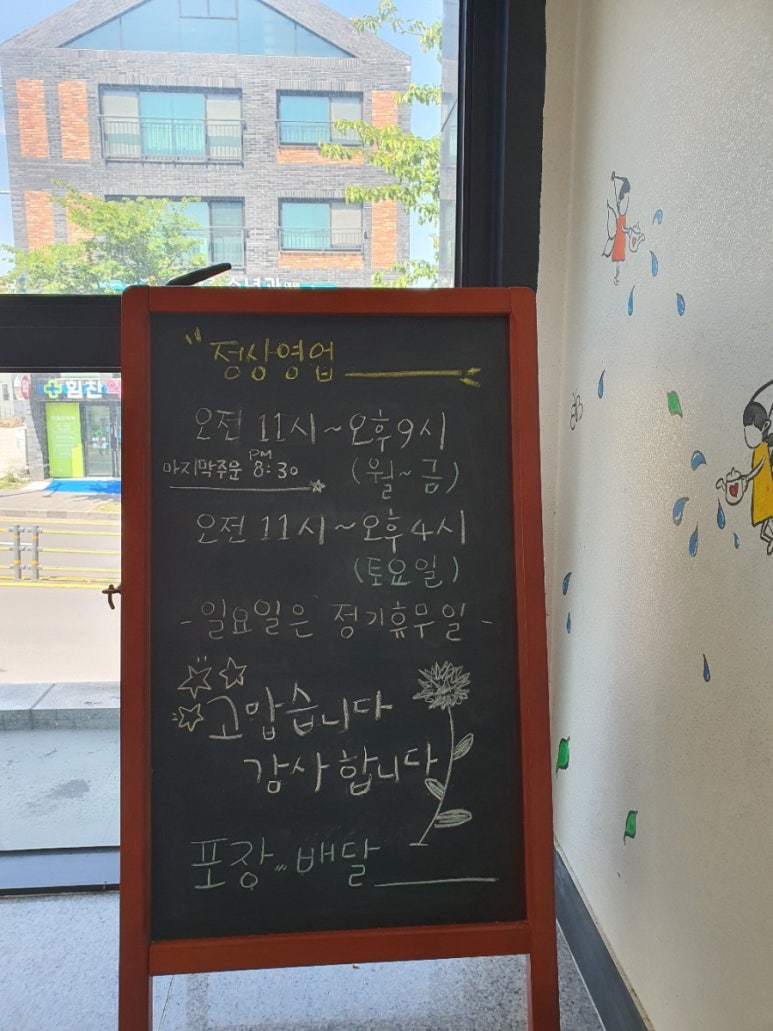 " 정상영업
오전 11시 ~ 오후 9시
마지막주문 PM 8:30
(월 ~ 금)
오전 11시 ~ 오후 4시
(토요일)
- 일요일은 정기휴무일 -
고맙습니다
감사합니다
포장 " 배달
힘찬